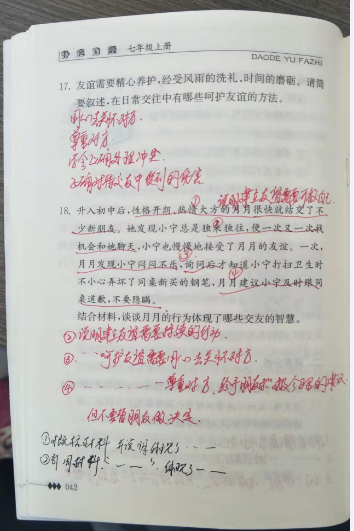 七年级上册
DAODE YU FAZHI
17. 友谊需要精心养护,经受风雨的洗礼、时间的磨砺。请简
要叙述,在日常交往中有哪些呵护友谊的方法。
用心去关怀对方.
尊重对方.
学会正确处理冲突.
正确对待交友中受到的伤害
① 说明建立友谊需要开放自己.
18. 升入初中后,性格开朗、热情大方的月月很快就结交了不
少新朋友。她发现小宁总是独来独往,便一次又一次找
机会和她聊天,小宁也慢慢地接受了月月的友谊。一次,
③
月月发现小宁闷闷不乐,询问后才知道小宁打扫卫生时
④
不小心弄坏了同桌新买的钢笔,月月建议小宁及时跟同
桌道歉,不要隐瞒。
结合材料,谈谈月月的行为体现了哪些交友的智慧。
② 说明建立友谊需要持续的行动.
③ 呵护友谊需要用心去关怀对方.
④ 尊重对方,给予朋友
但不要替朋友做决定.
① 材料
② 引用材料:“——”,体现了——
042